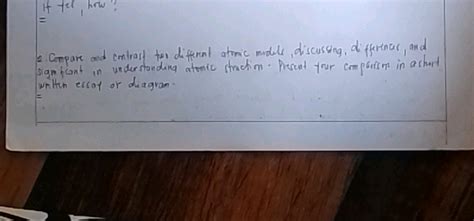 If yes, how?
=
2. Compare and contrast two different atomic models, discussing, differences, and
significant in understanding atomic struction. Present your comparison in a short
written essay or diagram.
=